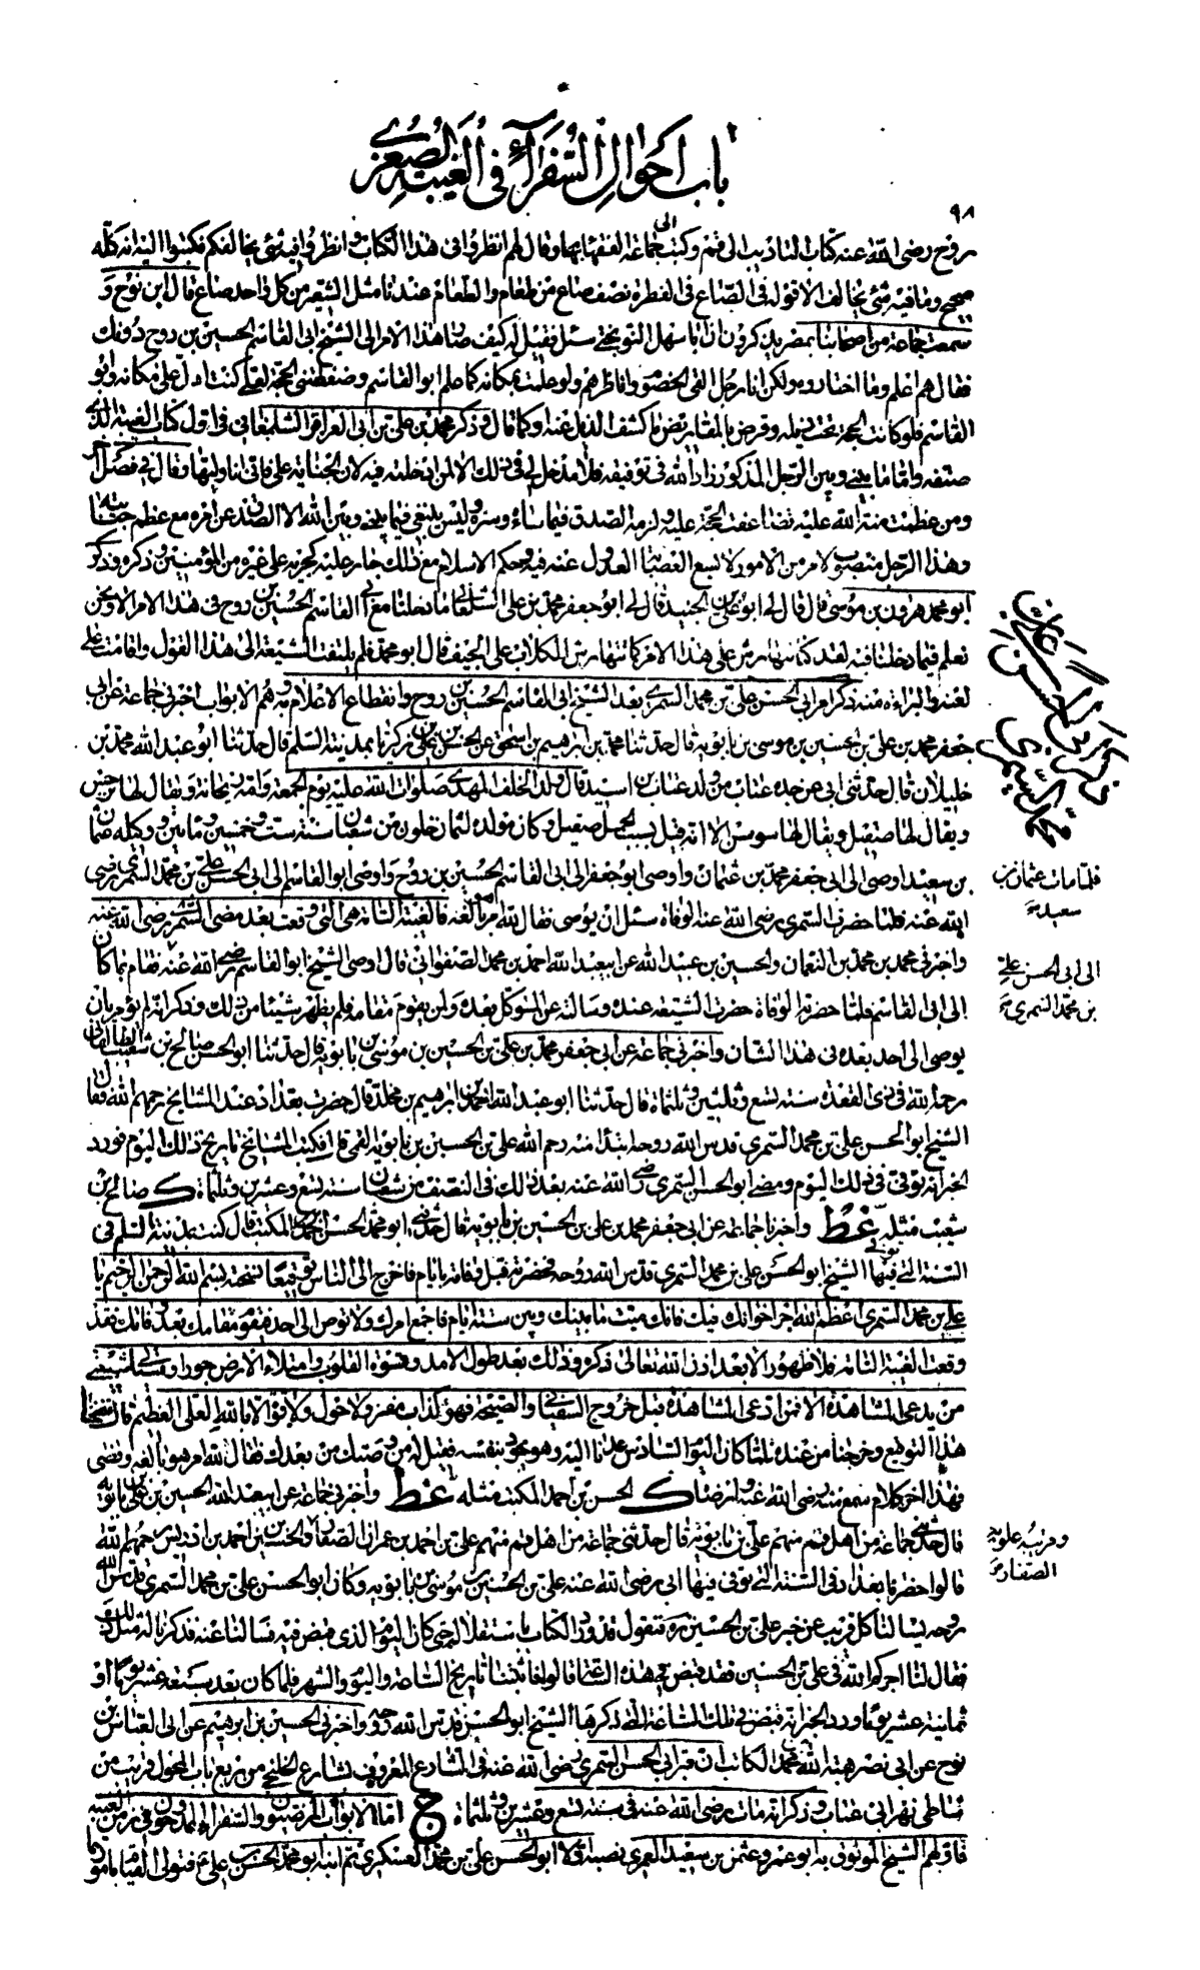 باب احوال السفراء في الغيبة الصغرى
٩٨
روح رضى الله عنه كتاب التاديب الى قم وكتب الى جماعة الفقهاء بها وقال لهم انظروا فى هذا الكتاب وانظروا فيه شئ يخالفكم فكتبوا اليه انه كله
صحيح وما فيه شئ يخالف الا قوله فى الصاع فى الفطرة نصف صاع من طعام والطعام عندنا مثل الشعير من كل واحد صاع قال ابن نوح و
سمعت جماعة من اصحابنا بمصر يذكرون ان ابا سهل النوبختى سئل فقيل له كيف صار هذا الامر الى الشيخ ابى القاسم الحسين بن روح دونك
فقال هم اعلم وما اختاروه ولكن انا رجل القى الخصوم واناظرهم ولو علمت بمكانه كما علم ابو القاسم وضغطتنى الحجة لعلى كنت ادل على مكانه وابو
القاسم فلو كانت الحجة تحت ذيله وقرض بالمقاريض ما كشف الذيل عنه او كما قال وذكر محمد بن على بن ابى العزاقر الشلمغانى فى اول كتاب الغيبة الذى
صنفه واما ما بينى وبين الرجل المذكور زاد الله فى توفيقه فلا مدخل لى فى ذلك الا لمن ادخلته فيه لان الجناية على فانى انا وليها وقال فى فصل آخر
ومن عظمت منة الله عليه تضاعفت الحجة عليه ولزمه الصدق فيما ساءه وسره وليس ينبغى فيما بينى وبين الله الا الصدق عن امره مع عظم جنايته
وهذا الرجل منصوب لامر من الامور لا يسع العصابة العدول عنه فيه وحكم الاسلام مع ذلك جار عليه كجريه على غيره من المؤمنين وذكره وذكر
ابو محمد هرون بن موسى قال قال لى ابو على بن الجنيد قال لى ابو جعفر محمد بن على الشلمغانى ما دخلنا مع ابى القاسم الحسين بن روح فى هذا الامر الا ونحن
نعلم فيما دخلنا فيه لقد كنا نتهارش على هذا الامر كما تتهارش الكلاب على الجيف قال ابو محمد فلم يلتفت الشيعة الى هذا القول واقامت على
لعنه والبراءة منه ذكر امر ابى الحسن على بن محمد السمرى بعد الشيخ ابى القاسم الحسين بن روح وانقطاع الاعلام به وهم الابواب اخبرنى جماعة عن ابى
جعفر محمد بن على بن الحسين بن موسى بن بابويه قال حدثنا محمد بن ابراهيم بن اسحق عن الحسن بن على بن زكريا بمدينة السلم قال حدثنا ابو عبد الله محمد بن
خليلان قال حدثنى ابى عن جده عتاب من ولد عتاب بن اسيد قال ولد الخلف المهدى صلوات الله عليه يوم الجمعة وامه ريحانة ويقال لها نرجس
ويقال لها صقيل ويقال لها سوسن الا انه قيل بسبب الحمل صقيل وكان مولده لثمان خلون من شعبان سنة ست وخمسين ومائتين ووكيله عثمان
بن سعيد اوصى الى ابى جعفر محمد بن عثمان واوصى ابو جعفر الى ابى القاسم الحسين بن روح واوصى ابو القاسم الى ابى الحسن على بن محمد السمرى رضى
الله عنه فلما حضرت السمرى رضى الله عنه الوفاة سئل ان يوصى فقال لله امر هو بالغه فالغيبة التامة هى التى وقعت بعد مضى السمرى رضى الله عنه
واخبرنى محمد بن محمد بن النعمان والحسين بن عبيد الله عن ابى عبد الله احمد بن محمد الصفوانى قال اوصى الشيخ ابو القاسم رضى الله عنه فقام بما كان
الى ابى القاسم فلما حضرته الوفاة حضرت الشيعة عنده وسالته عن الموكل بعده ولمن يقوم مقامه فلم يظهر شيئا من ذلك وذكر انه لم يؤمر بان
يوصى الى احد بعده فى هذا الشان واخبرنى جماعة عن ابى جعفر محمد بن على بن الحسين بن موسى بن بابويه قال حدثنا ابو الحسن صالح بن شعيب الطالقانى
رحمه الله فى ذى القعدة سنة تسع وثلثين وثلثمائة قال حدثنا ابو عبد الله احمد بن ابراهيم بن مخلد قال حضرت بغداد عند المشايخ رحمهم الله فقال
الشيخ ابو الحسن على بن محمد السمرى قدس الله روحه ابتداء منه رحم الله على بن الحسين بن بابويه القمى قال فكتب المشايخ تاريخ ذلك اليوم فورد
الخبر انه توفى فى ذلك اليوم ومضى ابو الحسن السمرى رضى الله عنه بعد ذلك فى النصف من شعبان سنة تسع وعشرين وثلثمائة ك صالح بن
شعيب مثله غط واخبرنا جماعة عن ابى جعفر محمد بن على بن الحسين بن بابويه قال حدثنى ابو محمد الحسن بن احمد المكتب قال كنت بمدينة السلم فى
السنة التى توفى فيها الشيخ ابو الحسن على بن محمد السمرى قدس الله روحه فحضرته قبل وفاته بايام فاخرج الى الناس توقيعا نسخته بسم الله الرحمن الرحيم يا
على بن محمد السمرى اعظم الله اجر اخوانك فيك فانك ميت ما بينك وبين ستة ايام فاجمع امرك ولا توص الى احد فيقوم مقامك بعد وفاتك فقد
وقعت الغيبة التامة فلا ظهور الا بعد اذن الله تعالى ذكره وذلك بعد طول الامد وقسوة القلوب وامتلاء الارض جورا وسياتى لشيعتى
من يدعى المشاهدة الا فمن ادعى المشاهدة قبل خروج السفيانى والصيحة فهو كذاب مفتر ولا حول ولا قوة الا بالله العلى العظيم قال فنسخنا
هذا التوقيع وخرجنا من عنده فلما كان اليوم السادس عدنا اليه وهو يجود بنفسه فقيل له من وصيك من بعدك فقال لله امر هو بالغه وقضى
فهذا آخر كلام سمع منه رضى الله عنه وارضاه ك الحسن بن احمد المكتب مثله غط واخبرنى جماعة عن ابى عبد الله الحسين بن على بن بابويه
قال حدثنى جماعة من اهل قم منهم على بن بابويه قال حدثنى جماعة من اهل قم منهم على بن احمد بن عمران الصفار والحسين بن احمد بن ادريس رحمهم الله
قالوا حضرنا بغداد فى السنة التى توفى فيها ابى رضى الله عنه على بن الحسين بن موسى بن بابويه وكان ابو الحسن على بن محمد السمرى قدس الله
روحه يسالنا كل قريب عن خبر على بن الحسين ره فنقول قد ورد الكتاب باستقلاله حتى كان اليوم الذى قبض فيه فسالنا عنه فذكرنا له مثل ذلك
فقال لنا اجركم الله فى على بن الحسين فقد قبض فى هذه الساعة قالوا فاثبتنا تاريخ الساعة واليوم والشهر فلما كان بعد سبعة عشر يوما او
ثمانية عشر يوما ورد الخبر انه قبض فى تلك الساعة التى ذكرها الشيخ ابو الحسن قدس الله روحه واخبرنى الحسين بن ابرهيم عن ابى العباس بن
نوح عن ابى نصر هبة الله بن محمد الكاتب ان قبر ابى الحسن السمرى رضى الله عنه فى الشارع المعروف بشارع الخلنجى من ربع باب المحول قريب من
شاطى نهر ابى عتاب وذكر انه مات رضى الله عنه فى سنة تسع وعشرين وثلثمائة ج اما الابواب المرضيون والسفراء الممدوحون فى زمن الغيبة
فاولهم الشيخ الموثوق به ابو عمرو عثمن بن سعيد العمرى نصبه اولا ابو الحسن على بن محمد العسكرى ثم ابنه ابو محمد الحسن بن على فتولى القيام بامور
ذكر امر ابى الحسن على بن
محمد السمرى
فلما مات عثمان بن
سعيد
الى ابى الحسن على
بن محمد السمرى
الصفار